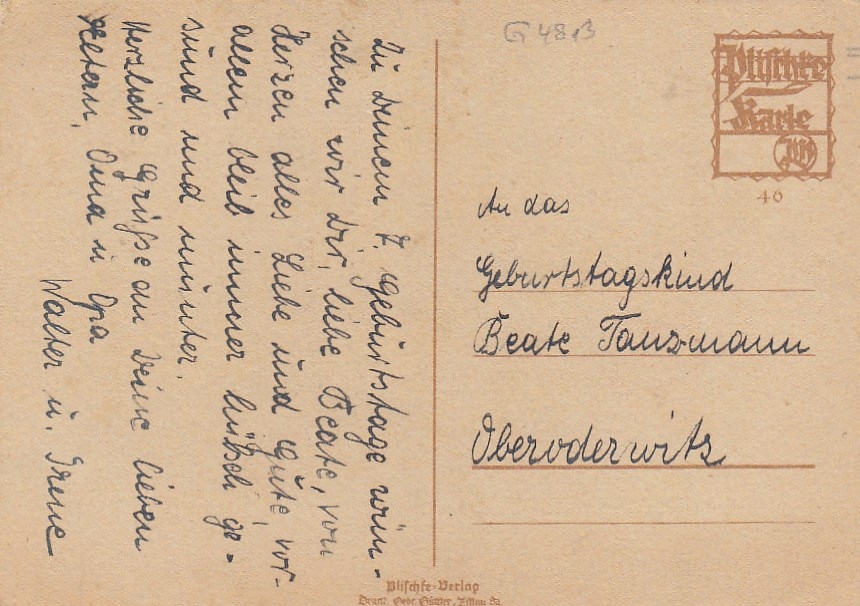 Zu Deinem 7. Geburtstage wün-
schen wir Dir, liebe Beate, von
Herzen alles Liebe und Gute, vor-
allem bleib immer hübsch ge-
sund und munter.
Herzliche Grüße an Deine lieben
Eltern, Oma u. Opa
Walter u. Irene
G 48 B
Plischke
Karte
46
An das
Geburtstagskind
Beate Tanzmann
Oberoderwitz
Plischke-Verlag
Druck: Gebr.